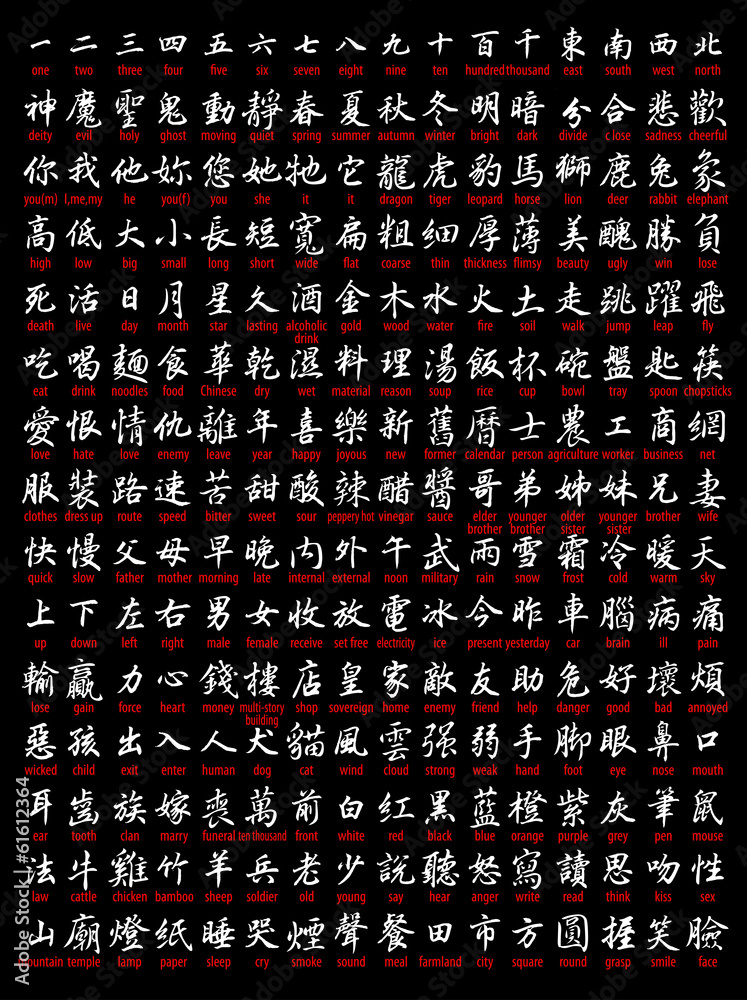 一 二 三 四 五 六 七 八 九 十 百 千 東 南 西 北
one two three four five six seven eight nine ten hundred thousand east south west north
神 魔 聖 鬼 動 靜 春 夏 秋 冬 明 暗 分 合 悲 歡
deity evil holy ghost moving quiet spring summer autumn winter bright dark divide close sadness cheerful
你 我 他 妳 您 她 牠 它 龍 虎 豹 馬 獅 鹿 兔 象
you(m) I,me,my he you(f) you she it it dragon tiger leopard horse lion deer rabbit elephant
高 低 大 小 長 短 寬 扁 粗 细 厚 薄 美 醜 勝 負
high low big small long short wide flat coarse thin thickness flimsy beauty ugly win lose
死 活 日 月 星 久 酒 金 木 水 火 土 走 跳 躍 飛
death live day month star lasting alcoholic drink gold wood water fire soil walk jump leap fly
吃 喝 麵 食 華 乾 濕 料 理 湯 飯 杯 碗 盤 匙 筷
eat drink noodles food Chinese dry wet material reason soup rice cup bowl tray spoon chopsticks
愛 恨 情 仇 離 年 喜 樂 新 舊 曆 士 農 工 商 網
love hate love enemy leave year happy joyous new former calendar person agriculture worker business net
服 裝 路 速 苦 甜 酸 辣 醋 醬 哥 弟 姊 妹 兄 妻
clothes dress up route speed bitter sweet sour peppery hot vinegar sauce elder brother younger brother older sister younger sister brother wife
快 慢 父 母 早 晚 内 外 午 武 雨 雪 霜 冷 暖 天
quick slow father mother morning late internal external noon military rain snow frost cold warm sky
上 下 左 右 男 女 收 放 電 冰 今 昨 車 腦 病 痛
up down left right male female receive set free electricity ice present yesterday car brain ill pain
輸 贏 力 心 錢 樓 店 皇 家 敵 友 助 危 好 壞 煩
lose gain force heart money multi-story building shop sovereign home enemy friend help danger good bad annoyed
惡 孩 出 入 人 犬 貓 風 雲 强 弱 手 脚 眼 鼻 口
wicked child exit enter human dog cat wind cloud strong weak hand foot eye nose mouth
耳 齒 族 嫁 喪 萬 前 白 红 黑 藍 橙 紫 灰 筆 鼠
ear tooth clan marry funeral ten thousand front white red black blue orange purple grey pen mouse
法 牛 雞 竹 羊 兵 老 少 說 聽 怒 寫 讀 思 吻 性
law cattle chicken bamboo sheep soldier old young say hear anger write read think kiss sex
山 廟 燈 纸 睡 哭 煙 聲 餐 田 市 方 圓 握 笑 臉
mountain temple lamp paper sleep cry smoke sound meal farmland city square round grasp smile face
Adobe Stock | #61612364